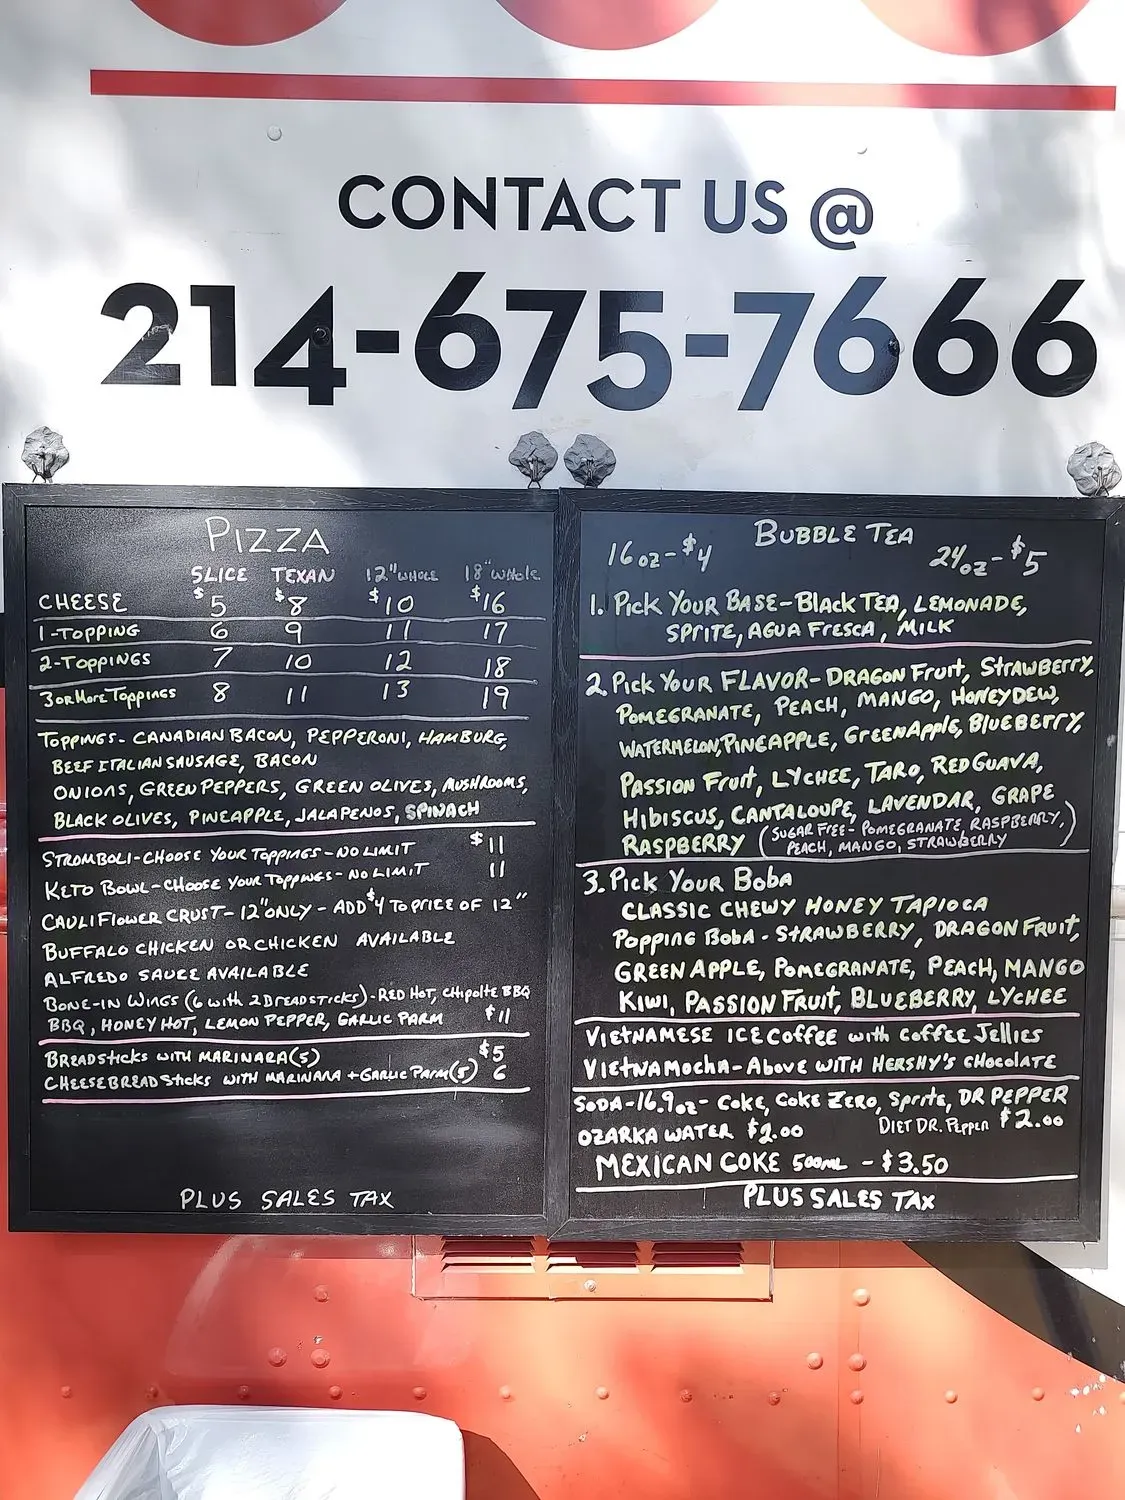 CONTACT US @
214-675-7666
PIZZA
SLICE TEXAN 12" WHOLE 18" WHOLE
CHEESE $5 $8 $10 $16
1-TOPPING 6 9 11 17
2-TOPPINGS 7 10 12 18
3 OR MORE TOPPINGS 8 11 13 19
TOPPINGS- CANADIAN BACON, PEPPERONI, HAMBURG,
BEEF ITALIAN SAUSAGE, BACON
ONIONS, GREEN PEPPERS, GREEN OLIVES, MUSHROOMS,
BLACK OLIVES, PINEAPPLE, JALAPENOS, SPINACH
STROMBOLI-CHOOSE YOUR TOPPINGS-NO LIMIT $11
KETO BOWL-CHOOSE YOUR TOPPINGS-NO LIMIT 11
CAULIFLOWER CRUST-12" ONLY - ADD $4 TO PRICE OF 12"
BUFFALO CHICKEN OR CHICKEN AVAILABLE
ALFREDO SAUCE AVAILABLE
BONE-IN WINGS (6 WITH 2 BREADSTICKS)-RED HOT, CHIPOLTE BBQ
BBQ, HONEY HOT, LEMON PEPPER, GARLIC PARM $11
BREADSTICKS WITH MARINARA (5) $5
CHEESEBREAD STICKS WITH MARINARA + GARLIC PARM (5) 6
PLUS SALES TAX
BUBBLE TEA
16 oz-$4 24 oz-$5
1. PICK YOUR BASE-BLACK TEA, LEMONADE,
SPRITE, AGUA FRESCA, MILK
2. PICK YOUR FLAVOR- DRAGON FRUIT, STRAWBERRY,
POMEGRANATE, PEACH, MANGO, HONEYDEW,
WATERMELON, PINEAPPLE, GREEN APPLE, BLUEBERRY,
PASSION FRUIT, LYCHEE, TARO, RED GUAVA,
HIBISCUS, CANTALOUPE, LAVENDAR, GRAPE
RASPBERRY (SUGAR FREE- POMEGRANATE, RASPBERRY,
PEACH, MANGO, STRAWBERRY)
3. PICK YOUR BOBA
CLASSIC CHEWY HONEY TAPIOCA
POPPING BOBA - STRAWBERRY, DRAGON FRUIT,
GREEN APPLE, POMEGRANATE, PEACH, MANGO
KIWI, PASSION FRUIT, BLUEBERRY, LYCHEE
VIETNAMESE ICE COFFEE WITH COFFEE JELLIES
VIETNAMOCHA-ABOVE WITH HERSHY'S CHOCOLATE
SODA-16.9 oz- COKE, COKE ZERO, SPRITE, DR PEPPER
DIET DR. PEPPER $2.00
OZARKA WATER $2.00
MEXICAN COKE 500ML - $3.50
PLUS SALES TAX